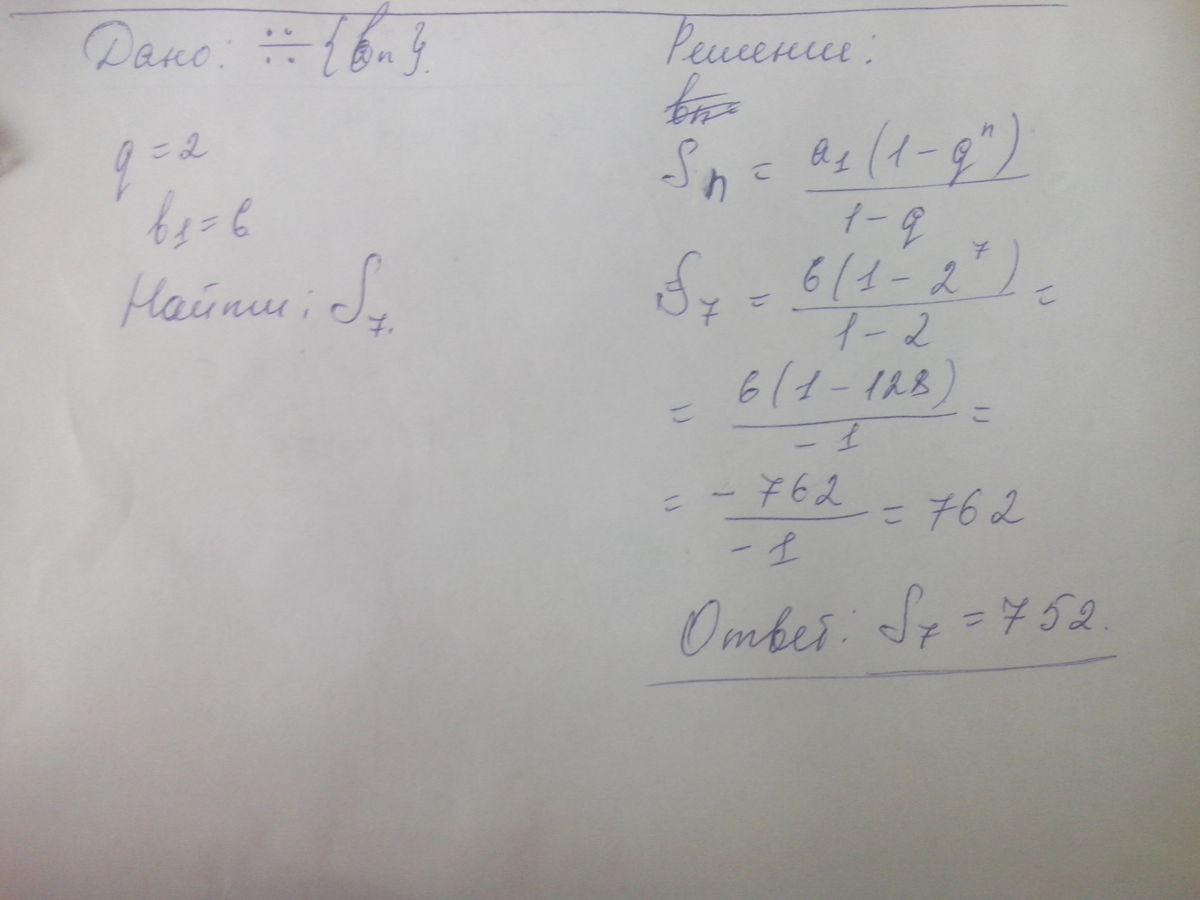 Дано: ∺ {bn}.
q = 2
b1 = 6
Найти: S7.
Решение:
Sn = a1(1 - q^n) / 1 - q
S7 = 6(1 - 2^7) / 1 - 2 =
= 6(1 - 128) / - 1 =
= - 762 / - 1 = 762
Ответ: S7 = 752.